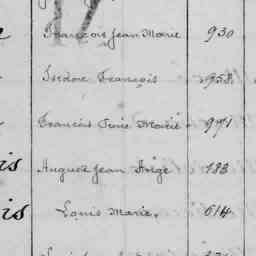 17
François Jean Marie 930
Isidore François 958
Francis Marie 971
is Auguste Jean 183
is Louis Marie, 614